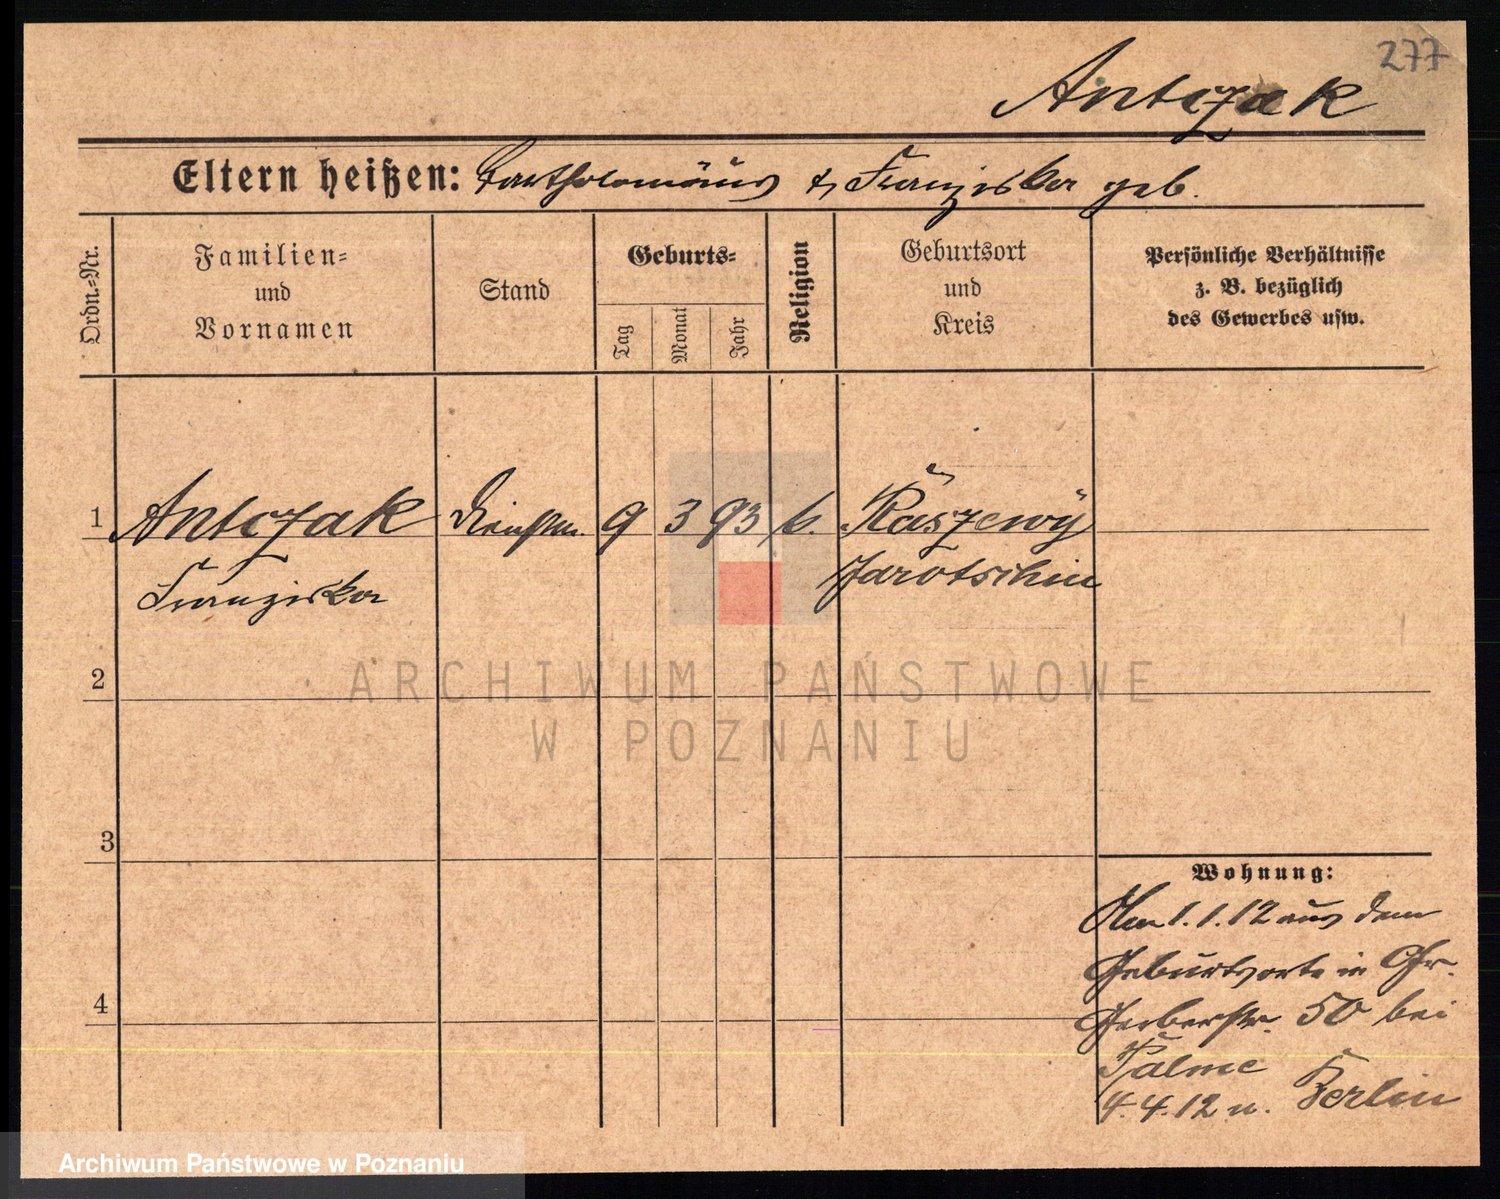 277
Antczak
Eltern heißen: Bartholomäus & Franziska geb.
Ordn.=Nr.
Familien=
und
Vornamen
Stand
Geburts=
Tag
Monat
Jahr
Religion
Geburtsort
und
Kreis
Persönliche Verhältnisse
z. B. bezüglich
des Gewerbes usw.
1 Antczak 9 3 93 k. Raszewy
Franziska Jarotschin
2
3
4
Wohnung:
Am 1.1.12 aus dem
Geburtsorte in Gr.
Gerberstr. 50 bei
Palme
4.4.12 n. Berlin
ARCHIWUM PAŃSTWOWE
W POZNANIU
Archiwum Państwowe w Poznaniu